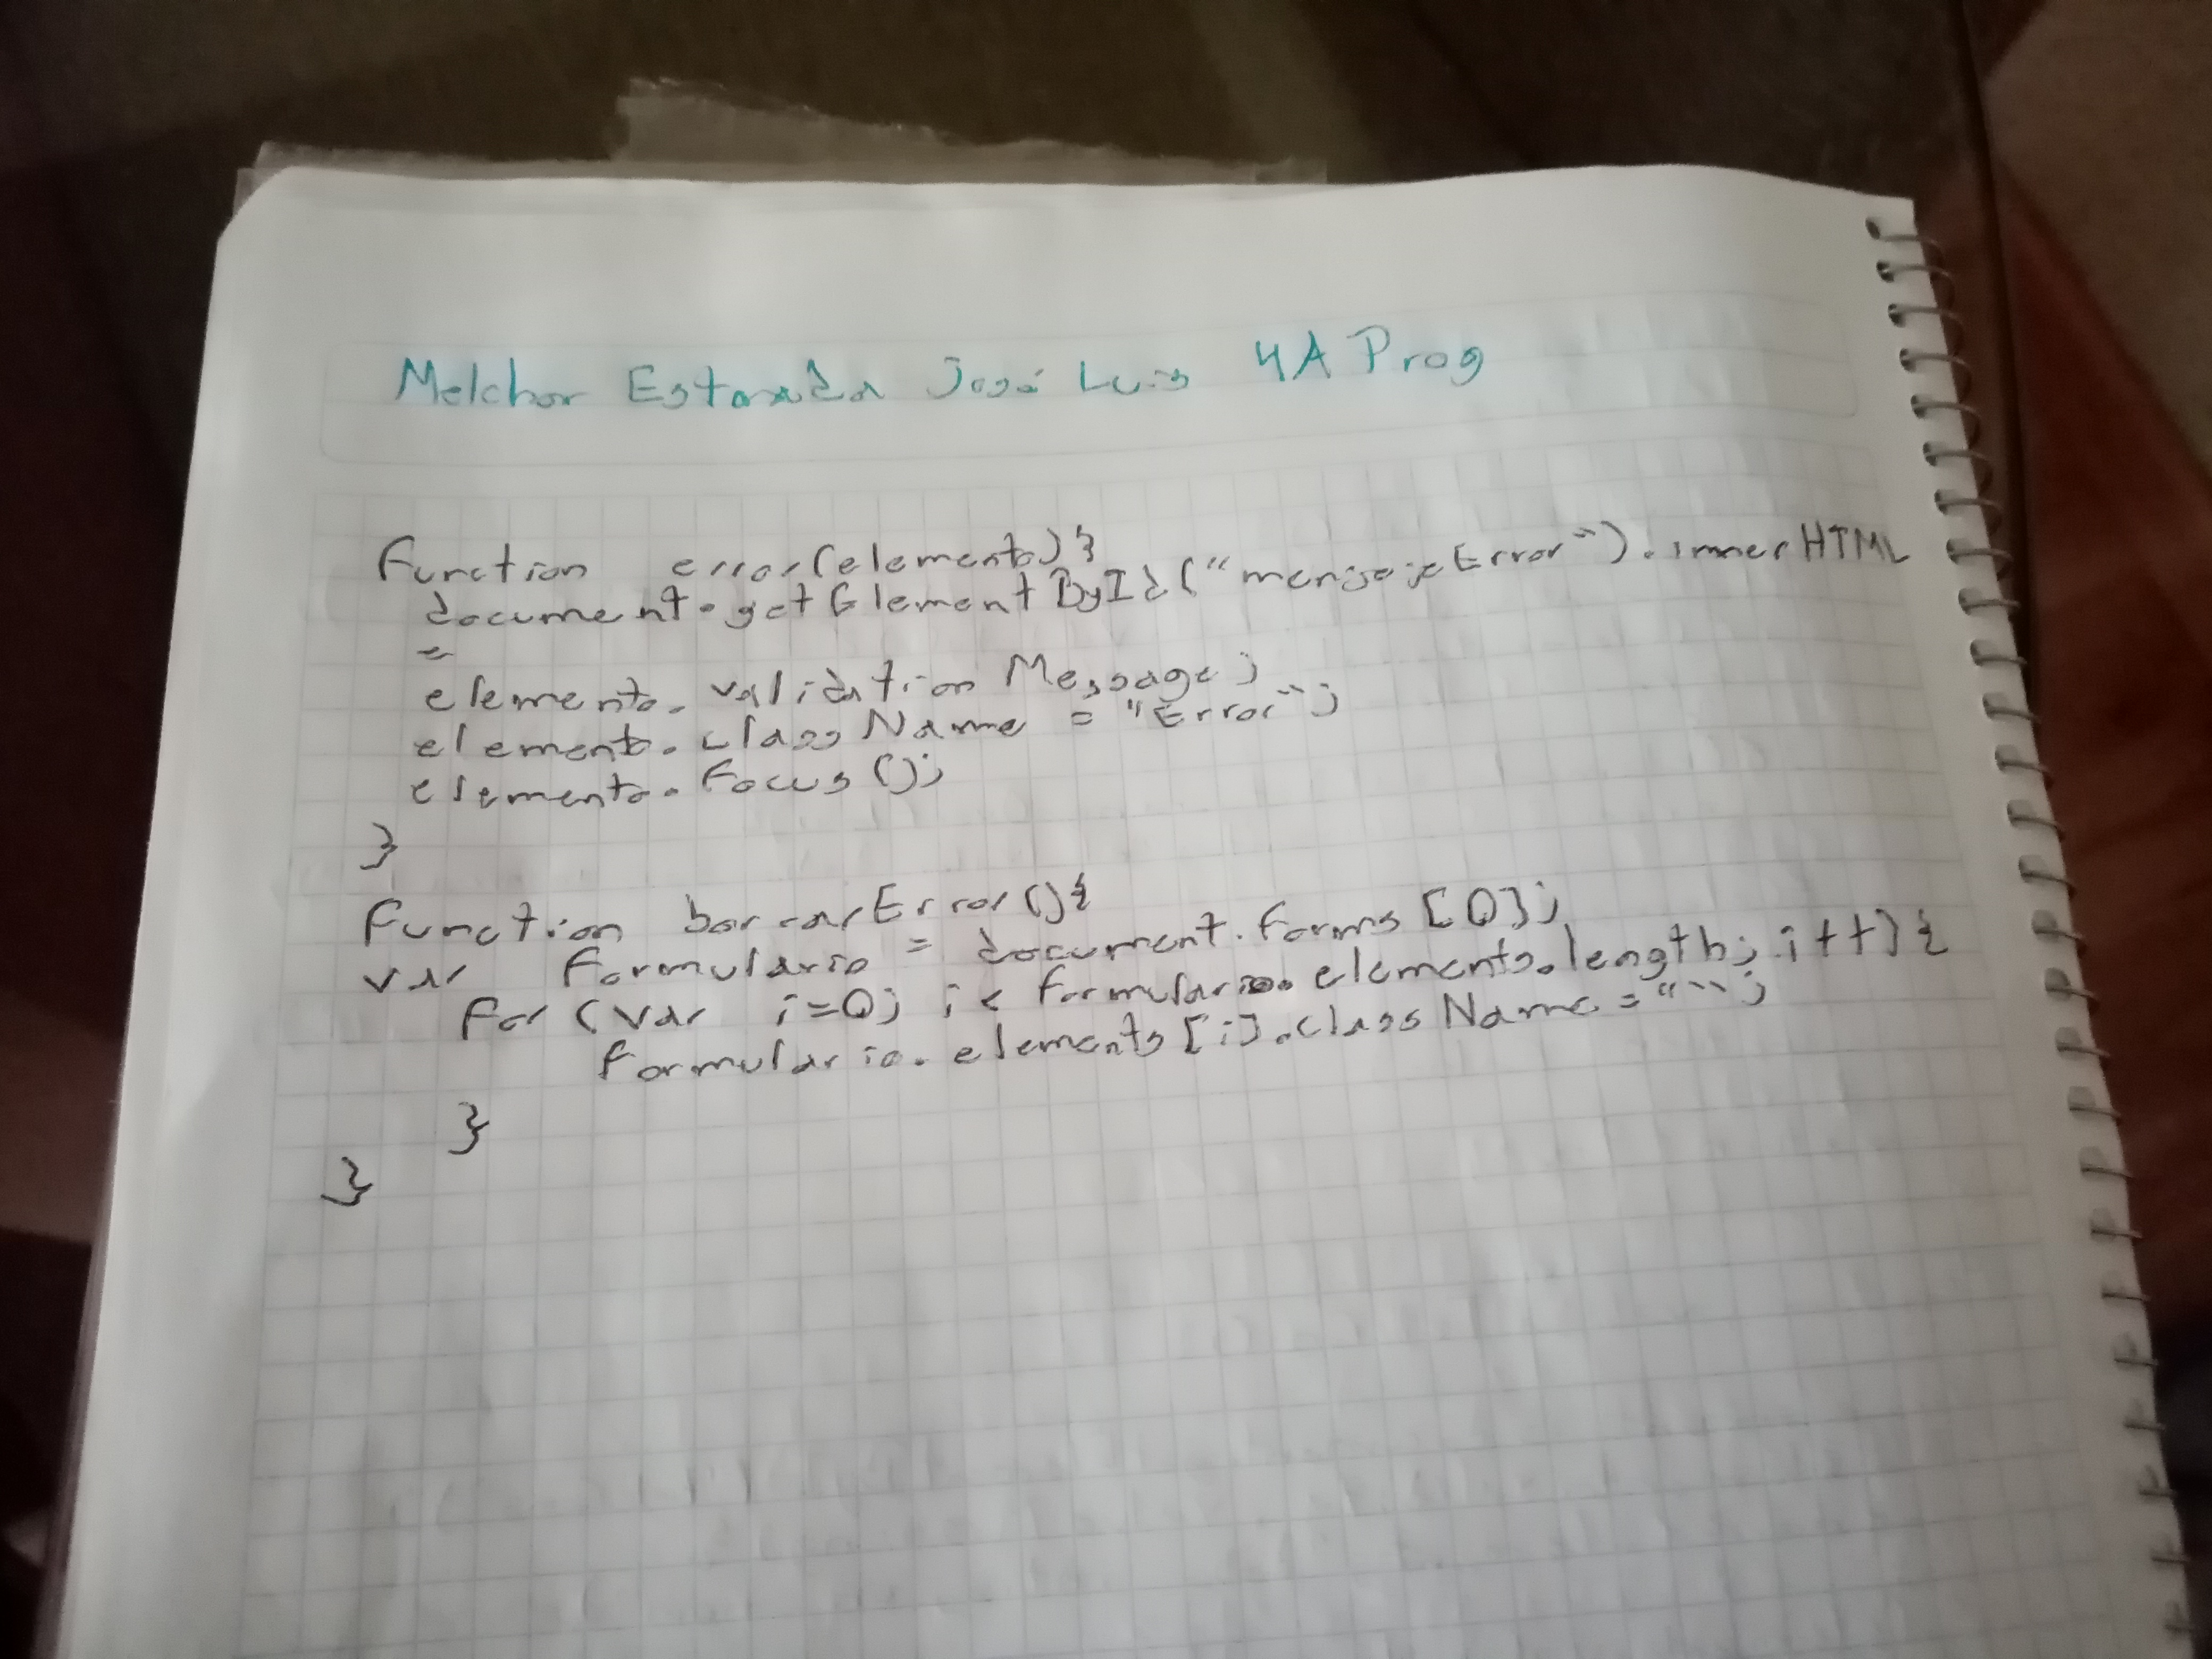 Melchor Estrada José Luis 4A Prog
Function error(elemento)}
document.getElementById("mensajeError").innerHTML
=
elemento.validationMessage;
elemento.className = "Error";
elemento.Focus();
}
Function borrarError(){
var Formulario = document.forms[0];
For (var i=0; i< formulario.elements.length; i++){
formulario.elements[i].className = "";
}
}